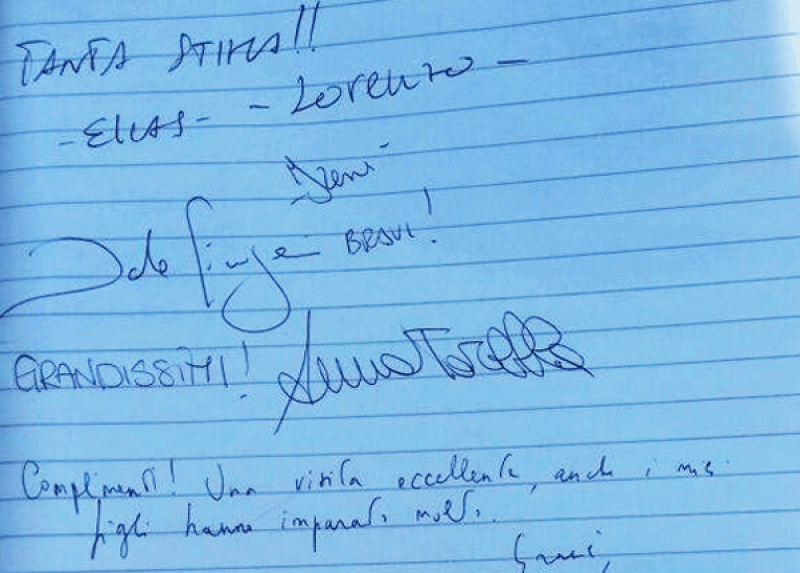 TANTA STIMA!!
-ELIAS- - Lorenzo -
BRAVI!
GRANDISSIMI! Anna
Complimenti! Una visita eccellente, anche i miei
figli hanno imparato molto.
Grazie,